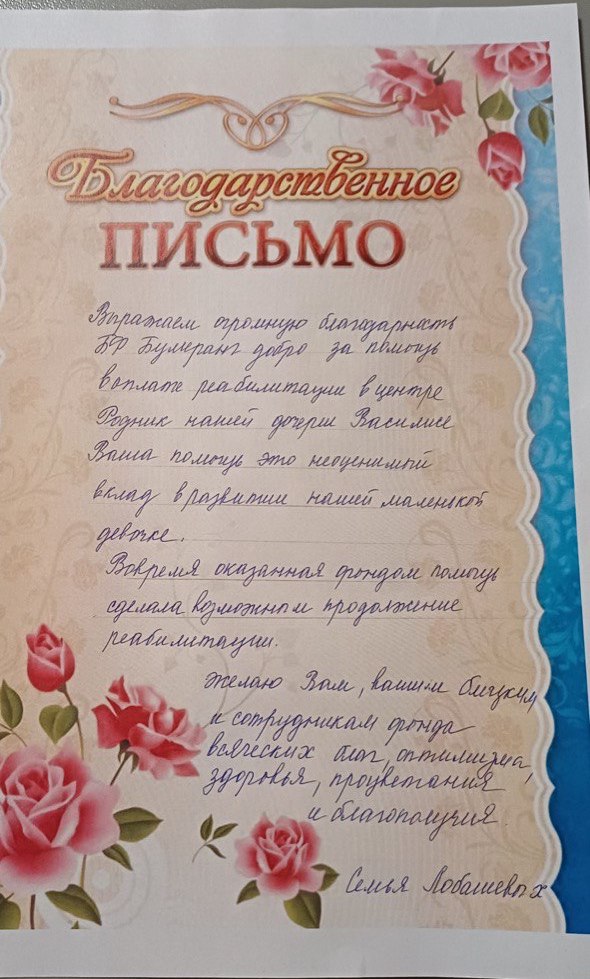 Благодарственное
ПИСЬМО
Выражаем огромную благодарность
БФ Бумеранг добро за помощь
в оплате реабилитации в центре
Родник нашей дочери Василисе
Ваша помощь это неоценимый
вклад в развитии нашей маленькой
девочке.
Вовремя оказанная фондом помощь
сделала возможным продолжение
реабилитации.
Желаю Вам, вашим близким
и сотрудникам фонда
всяческих благ, оптимизма,
здоровья, процветания
и благополучия.
Семья Лобашевых